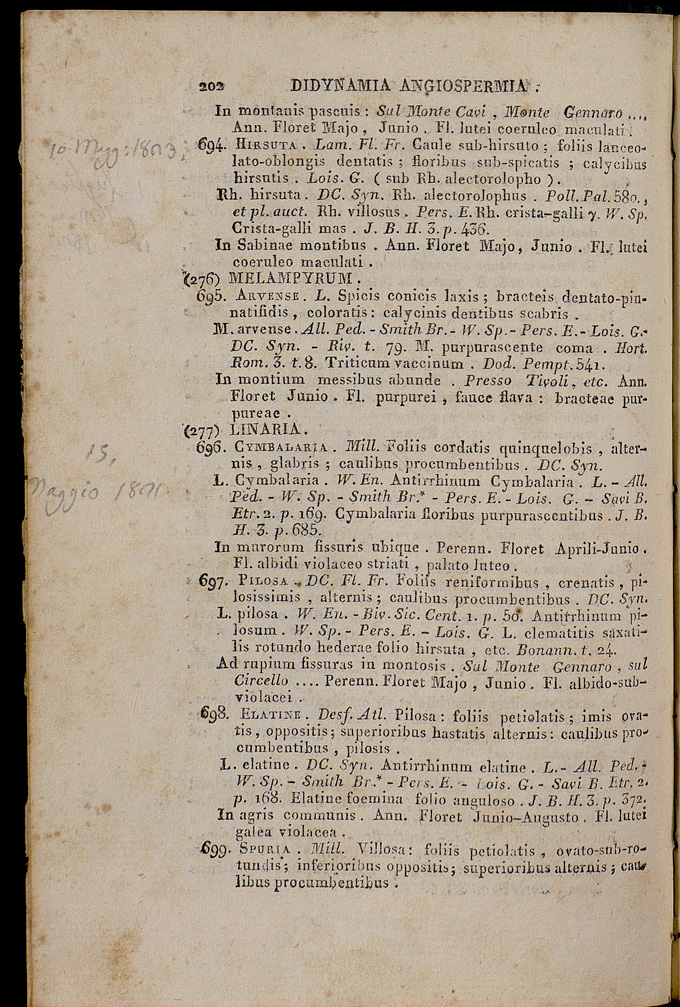 202 DIDYNAMIA ANGIOSPERMIA .
In montanis pascuis : Sul Monte Cavi , Monte Gennaro ....
Ann. Floret Majo , Junio . Fl. lutei coeruleo maculati .
10 Magg: 1803,
694. HIRSUTA . Lam. Fl. Fr. Caule sub-hirsuto ; foliis lanceo-
lato-oblongis dentatis ; floribus sub-spicatis ; calycibus
hirsutis . Lois. G. ( sub Rh. alectorolopho ) .
Rh. hirsuta . DC. Syn. Rh. alectorolophus . Poll. Pal. 580. ,
et pl. auct. Rh. villosus . Pers. E. Rh. crista-galli γ. W. Sp.
Crista-galli mas . J. B. H. 3. p. 436.
In Sabinae montibus . Ann. Floret Majo, Junio . Fl. lutei
coeruleo maculati .
(276) MELAMPYRUM .
695. ARVENSE . L. Spicis conicis laxis ; bracteis dentato-pin-
natifidis , coloratis : calycinis dentibus scabris .
M. arvense . All. Ped. - Smith Br. - W. Sp. - Pers. E. - Lois. G. -
DC. Syn. - Riv. t. 79. M. purpurascente coma . Hort.
Rom. 3. t. 8. Triticum vaccinum . Dod. Pempt. 541.
In montium messibus abunde . Presso Tivoli, etc. Ann.
Floret Junio . Fl. purpurei , fauce flava : bracteae pur-
pureae .
(277) LINARIA .
696. CYMBALARIA . Mill. Foliis cordatis quinquelobis , alter-
nis , glabris ; caulibus procumbentibus . DC. Syn.
15,
Maggio 1801
L. Cymbalaria . W. En. Antirrhinum Cymbalaria . L. - All.
Ped. - W. Sp. - Smith Br.* - Pers. E. - Lois. G. - Savi B.
Etr. 2. p. 169. Cymbalaria floribus purpurascentibus . J. B.
H. 3. p. 685.
In murorum fissuris ubique . Perenn. Floret Aprili-Junio .
Fl. albidi violaceo striati , palato luteo .
697. PILOSA . DC. Fl. Fr. Foliis reniformibus , crenatis , pi-
losissimis , alternis ; caulibus procumbentibus . DC. Syn.
L. pilosa . W. En. - Biv. Sic. Cent. 1. p. 50. Antirrhinum pi-
losum . W. Sp. - Pers. E. - Lois. G. L. clematitis saxati-
lis rotundo hederae folio hirsuta , etc. Bonann. t. 24.
Ad rupium fissuras in montosis . Sul Monte Gennaro , sul
Circello .... Perenn. Floret Majo , Junio . Fl. albido-sub-
violacei .
698. ELATINE . Desf. Atl. Pilosa : foliis petiolatis ; imis ova-
tis , oppositis ; superioribus hastatis alternis : caulibus pro-
cumbentibus , pilosis .
L. elatine . DC. Syn. Antirrhinum elatine . L. - All. Ped. -
W. Sp. - Smith Br.* - Pers. E. - Lois. G. - Savi B. Etr. 2.
p. 168. Elatine foemina folio anguloso . J. B. H. 3. p. 372.
In agris communis . Ann. Floret Junio-Augusto . Fl. lutei
galea violacea .
699. SPURIA . Mill. Villosa : foliis petiolatis , ovato-sub-ro-
tundis ; inferioribus oppositis ; superioribus alternis ; cau-
libus procumbentibus .